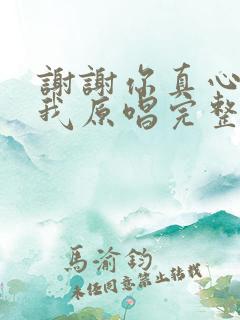 謝謝你真心
我原唱完整
馬渝鈞
未任同意禁止转载